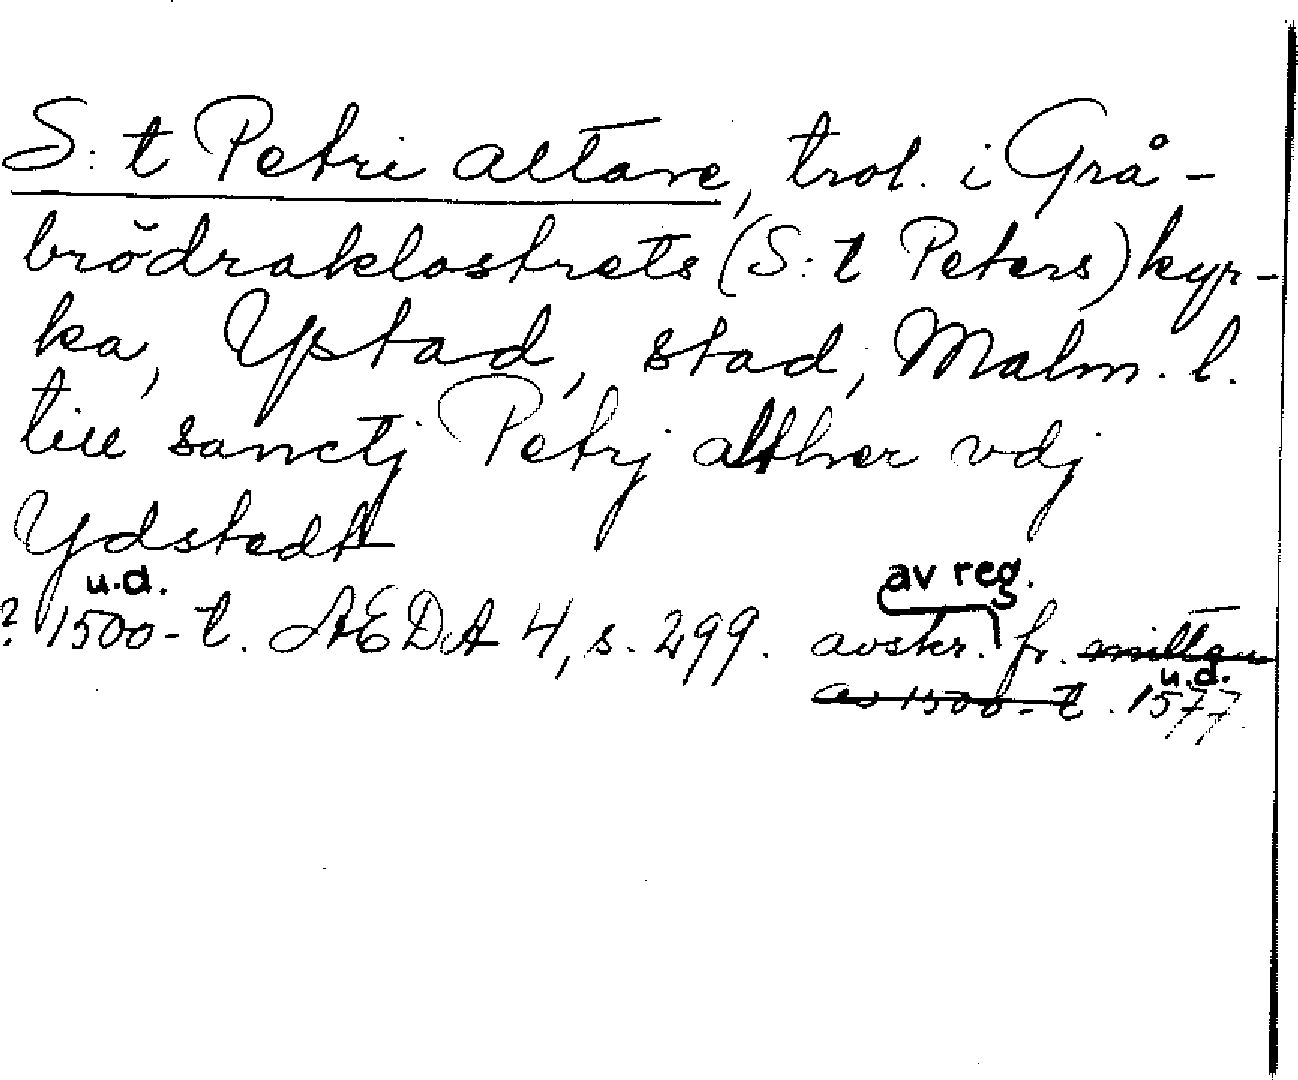 S:t Petri altare, trol. i Grå-
brödraklostrets (S:t Peters) kyr-
ka, Ystad, stad, Malm. l.
till sanctj Petrj allther vdj
Ydstedt
u.d. av reg.
? 1500-t. AEDA 4, s. 299. avskr. fr. mitten
av 1500-t. u.d. 1577